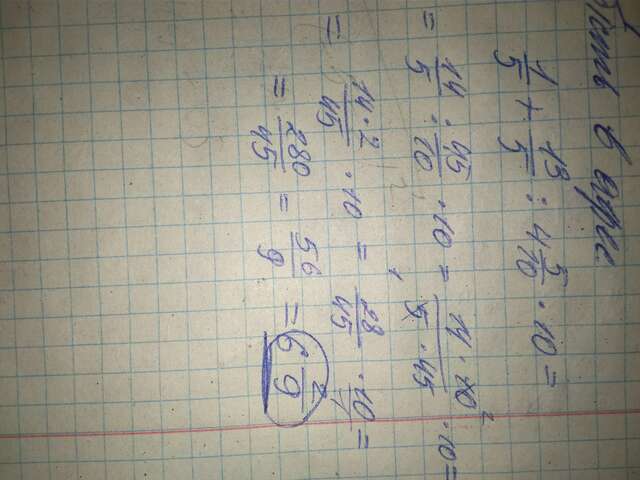 1/5 + 13/5 : 4 5/10 · 10 =
= 14/5 : 45/10 · 10 = 14 · 10 2/5 · 45 · 10 =
= 14 · 2/45 · 10 = 28/45 · 10/1 =
= 280/45 = 56/9 = 6 2/9